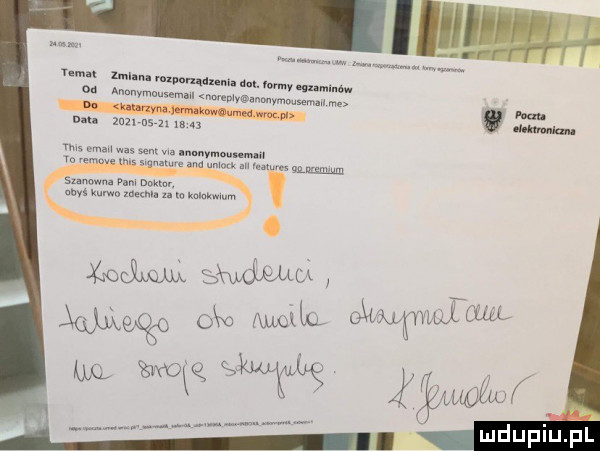 24.05.2021
Temat Zmiana rozporządzenia dot. formy egzaminów
Od Anonymousemail <noreply@anonymousemail.me>
Do <katarzyna.jermakow@umed.wroc.pl>
Data 2021-05-21 18:43
Poczta
elektroniczna
This email was sent via anonymousemail
To remove this signature and unlock all features go premium
Szanowna Pani Doktor,
obyś kurwo zdechła za to kolokwium
!
Kochani studenci,
takiego oto maila otrzymałam
na swoją skrzynkę.
K. Jermakow
mdupiu.pl